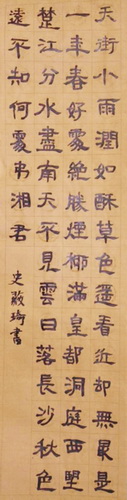 天街小雨潤如酥草色遙看近卻無最是
一年春好處絕勝煙柳滿皇都洞庭西望
楚江分水盡南天不見雲日落長沙秋色
遠不知何處弔湘君
史 書